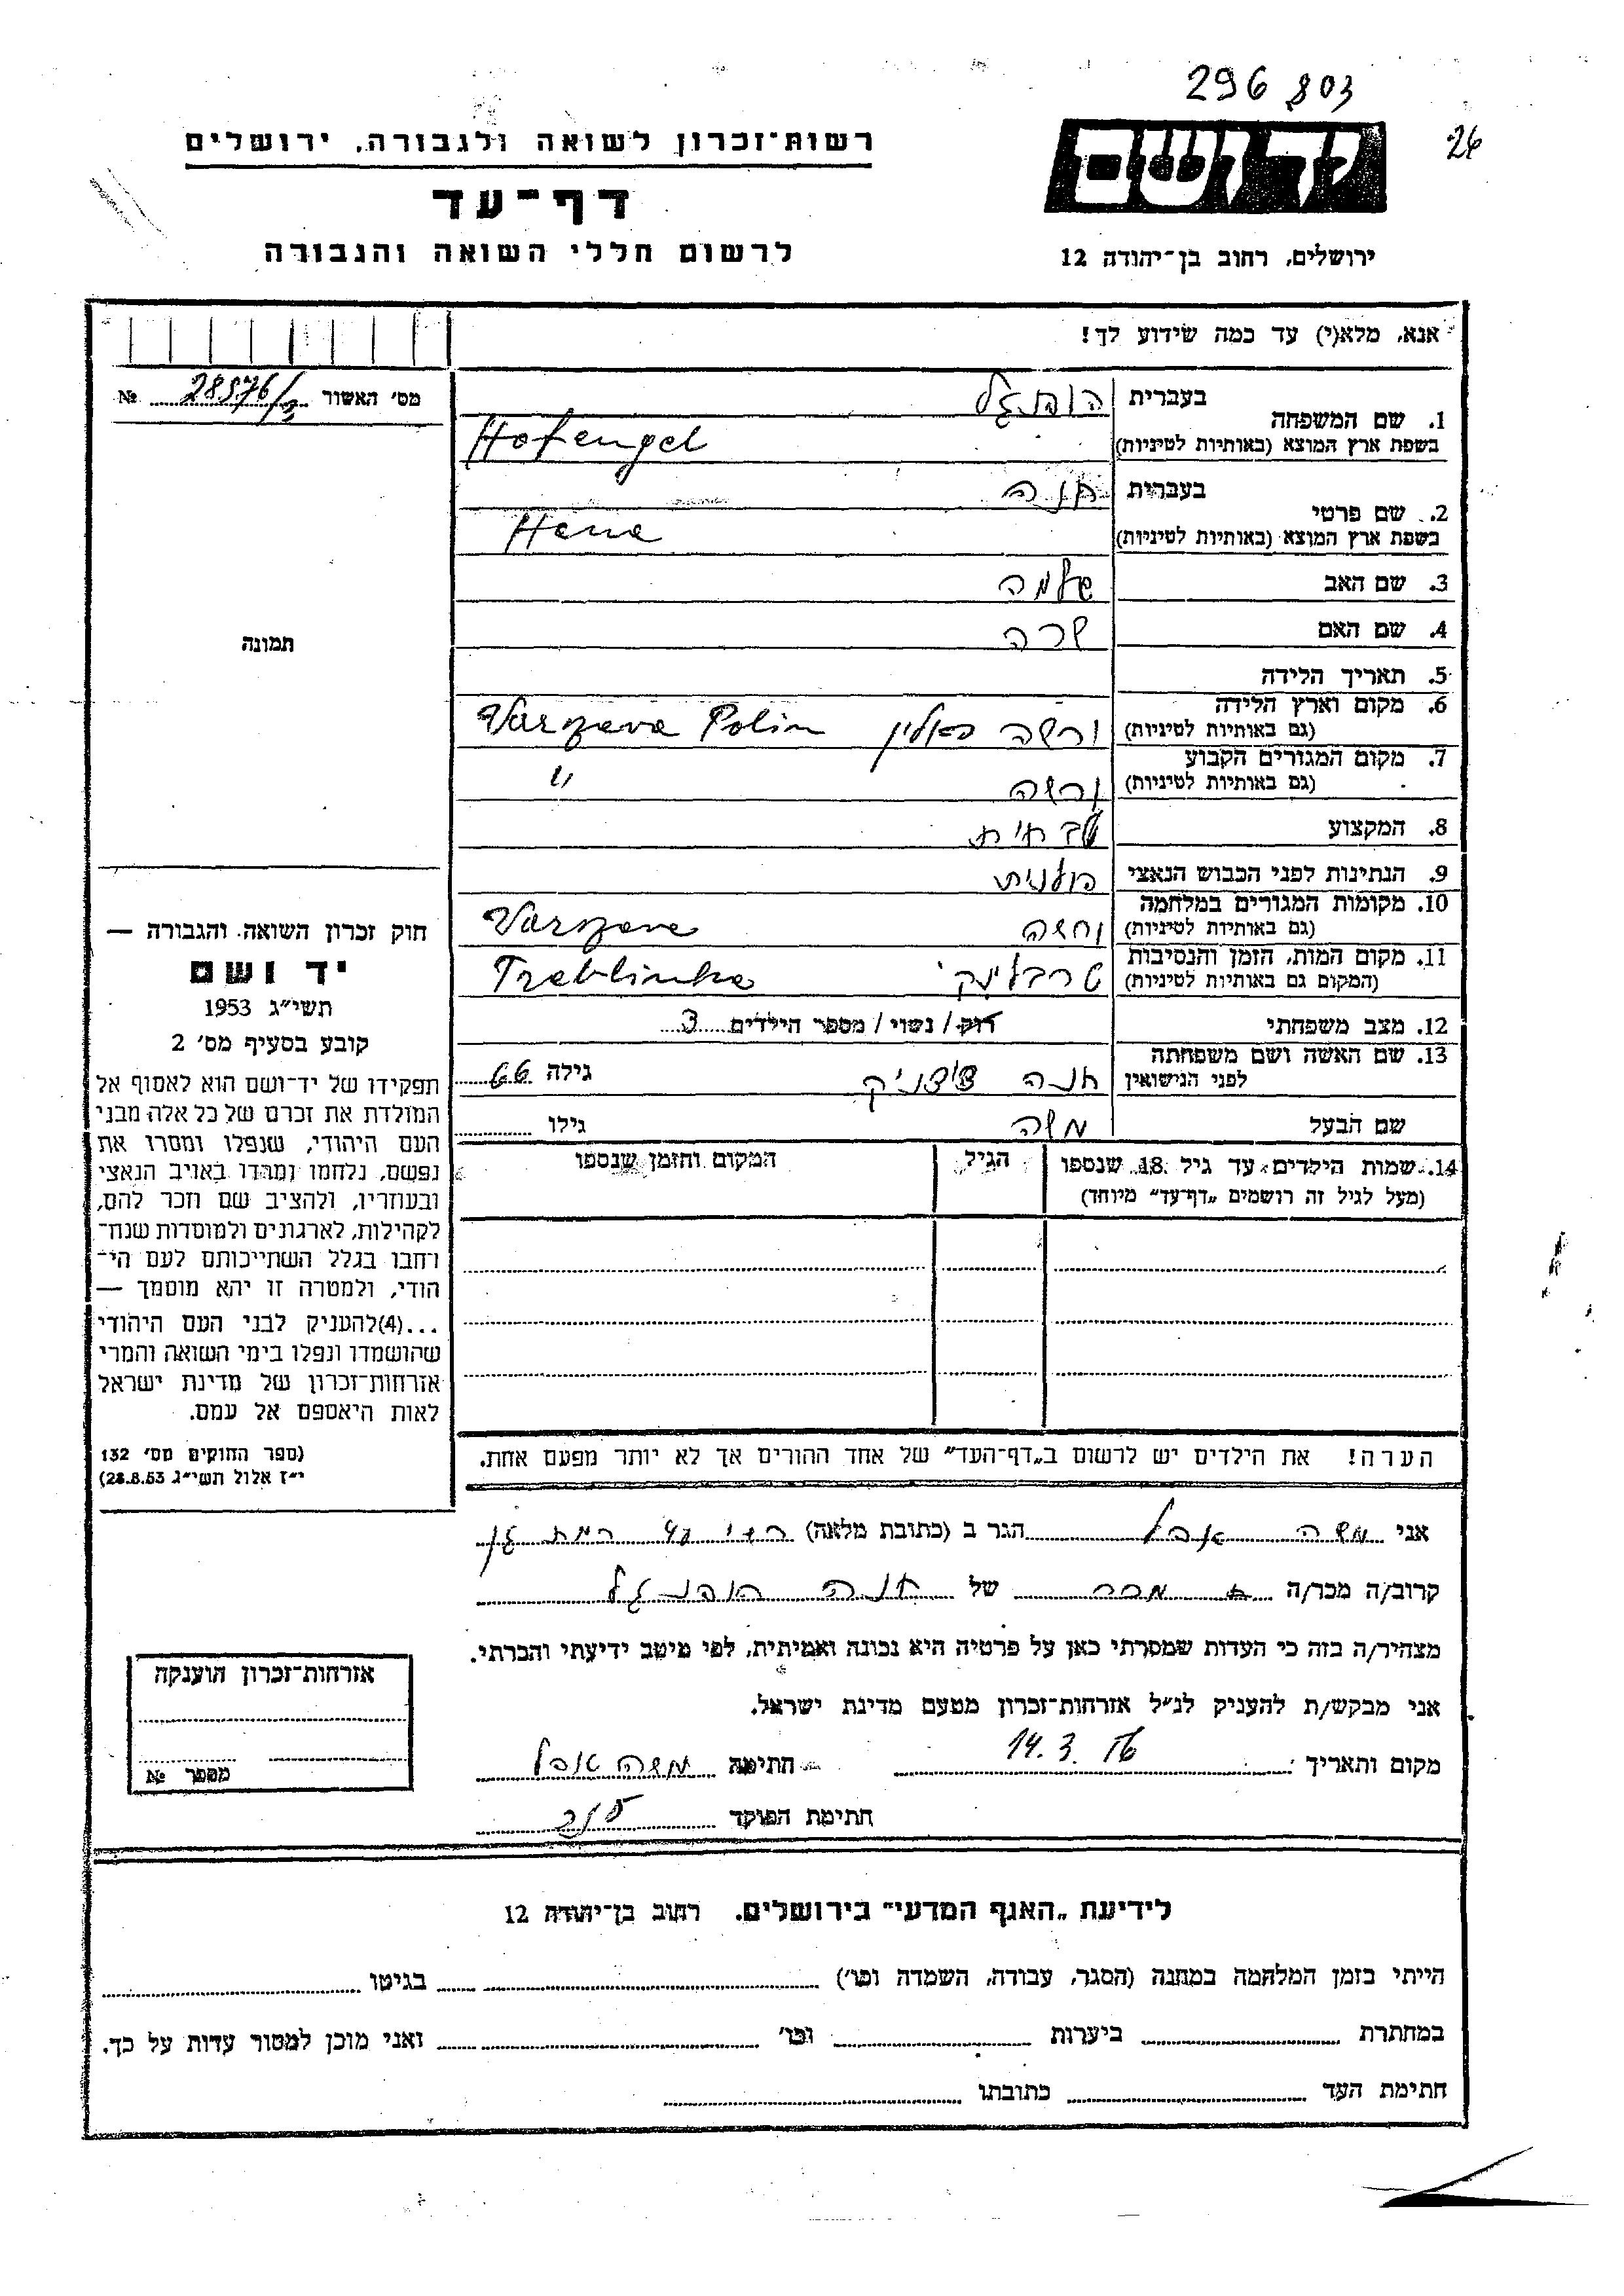 296 803
26
יד ושם
רשות־זכרון לשואה ולגבורה, ירושלים
דף־עד
לרשום חללי השואה והגבורה
ירושלים, רחוב בן־יהודה 12
אנא, מלא(י) עד כמה שידוע לך!
מס׳ האשור № 28576/3
1. שם המשפחה בעברית הופנגל
בשפת ארץ המוצא (באותיות לטיניות) Hofengel
2. שם פרטי בעברית חנה
בשפת ארץ המוצא (באותיות לטיניות) Hena
3. שם האב שלמה
4. שם האם שרה
תמונה
5. תאריך הלידה
6. מקום וארץ הלידה (גם באותיות לטיניות) ורשה פאלין Varzava Polin
7. מקום המגורים הקבוע (גם באותיות לטיניות) ורשה "
8. המקצוע
9. הנתינות לפני הכבוש הנאצי פולנית
10. מקומות המגורים במלחמה (גם באותיות לטיניות) ורשה Varzava
11. מקום המות, הזמן והנסיבות (המקום גם באותיות לטיניות) טרבלינק׳ Treblinka
12. מצב משפחתי רוק / נשוי / מספר הילדים 3
13. שם האשה ושם משפחתה לפני הנישואין חנה גילה 66
שם הבעל משה גילו
14. שמות הילדים עד גיל 18 שנספו (מעל לגיל זה רושמים „דף־עד״ מיוחד) הגיל המקום והזמן שנספו
חוק זכרון השואה והגבורה —
יד ושם
תשי״ג 1953
קובע בסעיף מס׳ 2
תפקידו של יד־ושם הוא לאסוף אל
המולדת את זכרם של כל אלה מבני
העם היהודי, שנפלו ומסרו את
נפשם, נלחמו ומרדו באויב הנאצי
ובעוזריו, ולהציב שם וזכר להם,
לקהילות, לארגונים ולמוסדות שנח־
רחבו בגלל השתייכותם לעם הי־
הודי, ולמטרה זו יהא מוסמך —
...(4)להעניק לבני העם היהודי
שהושמדו ונפלו בימי השואה והמרי
אזרחות־זכרון של מדינת ישראל
לאות היאספם אל עמם.
(ספר החוקים מס׳ 132
י״ז אלול תשי״ג 28.8.53)
הערה! את הילדים יש לרשום ב„דף־העד״ של אחד ההורים אך לא יותר מפעם אחת.
אני משה הגר ב (כתובת מלאה) רמת גן
קרוב/ה מכר/ה מכר של חנה הופנגל
מצהיר/ה בזה כי העדות שמסרתי כאן על פרטיה היא נכונה ואמיתית, לפי מיטב ידיעתי והכרתי.
אני מבקש/ת להעניק לנ״ל אזרחות־זכרון מטעם מדינת ישראל.
מקום ותאריך 14.3. חתימה משה
חתימת הפוקד
אזרחות־זכרון הוענקה
מספר №
לידיעת „האגף המדעי״ בירושלים. רחוב בן־יהודה 12
הייתי בזמן המלחמה במחנה (הסגר, עבודה, השמדה וכו׳) בגיטו
במחתרת ביערות וכו׳ ואני מוכן למסור עדות על כך.
חתימת העד כתובתו